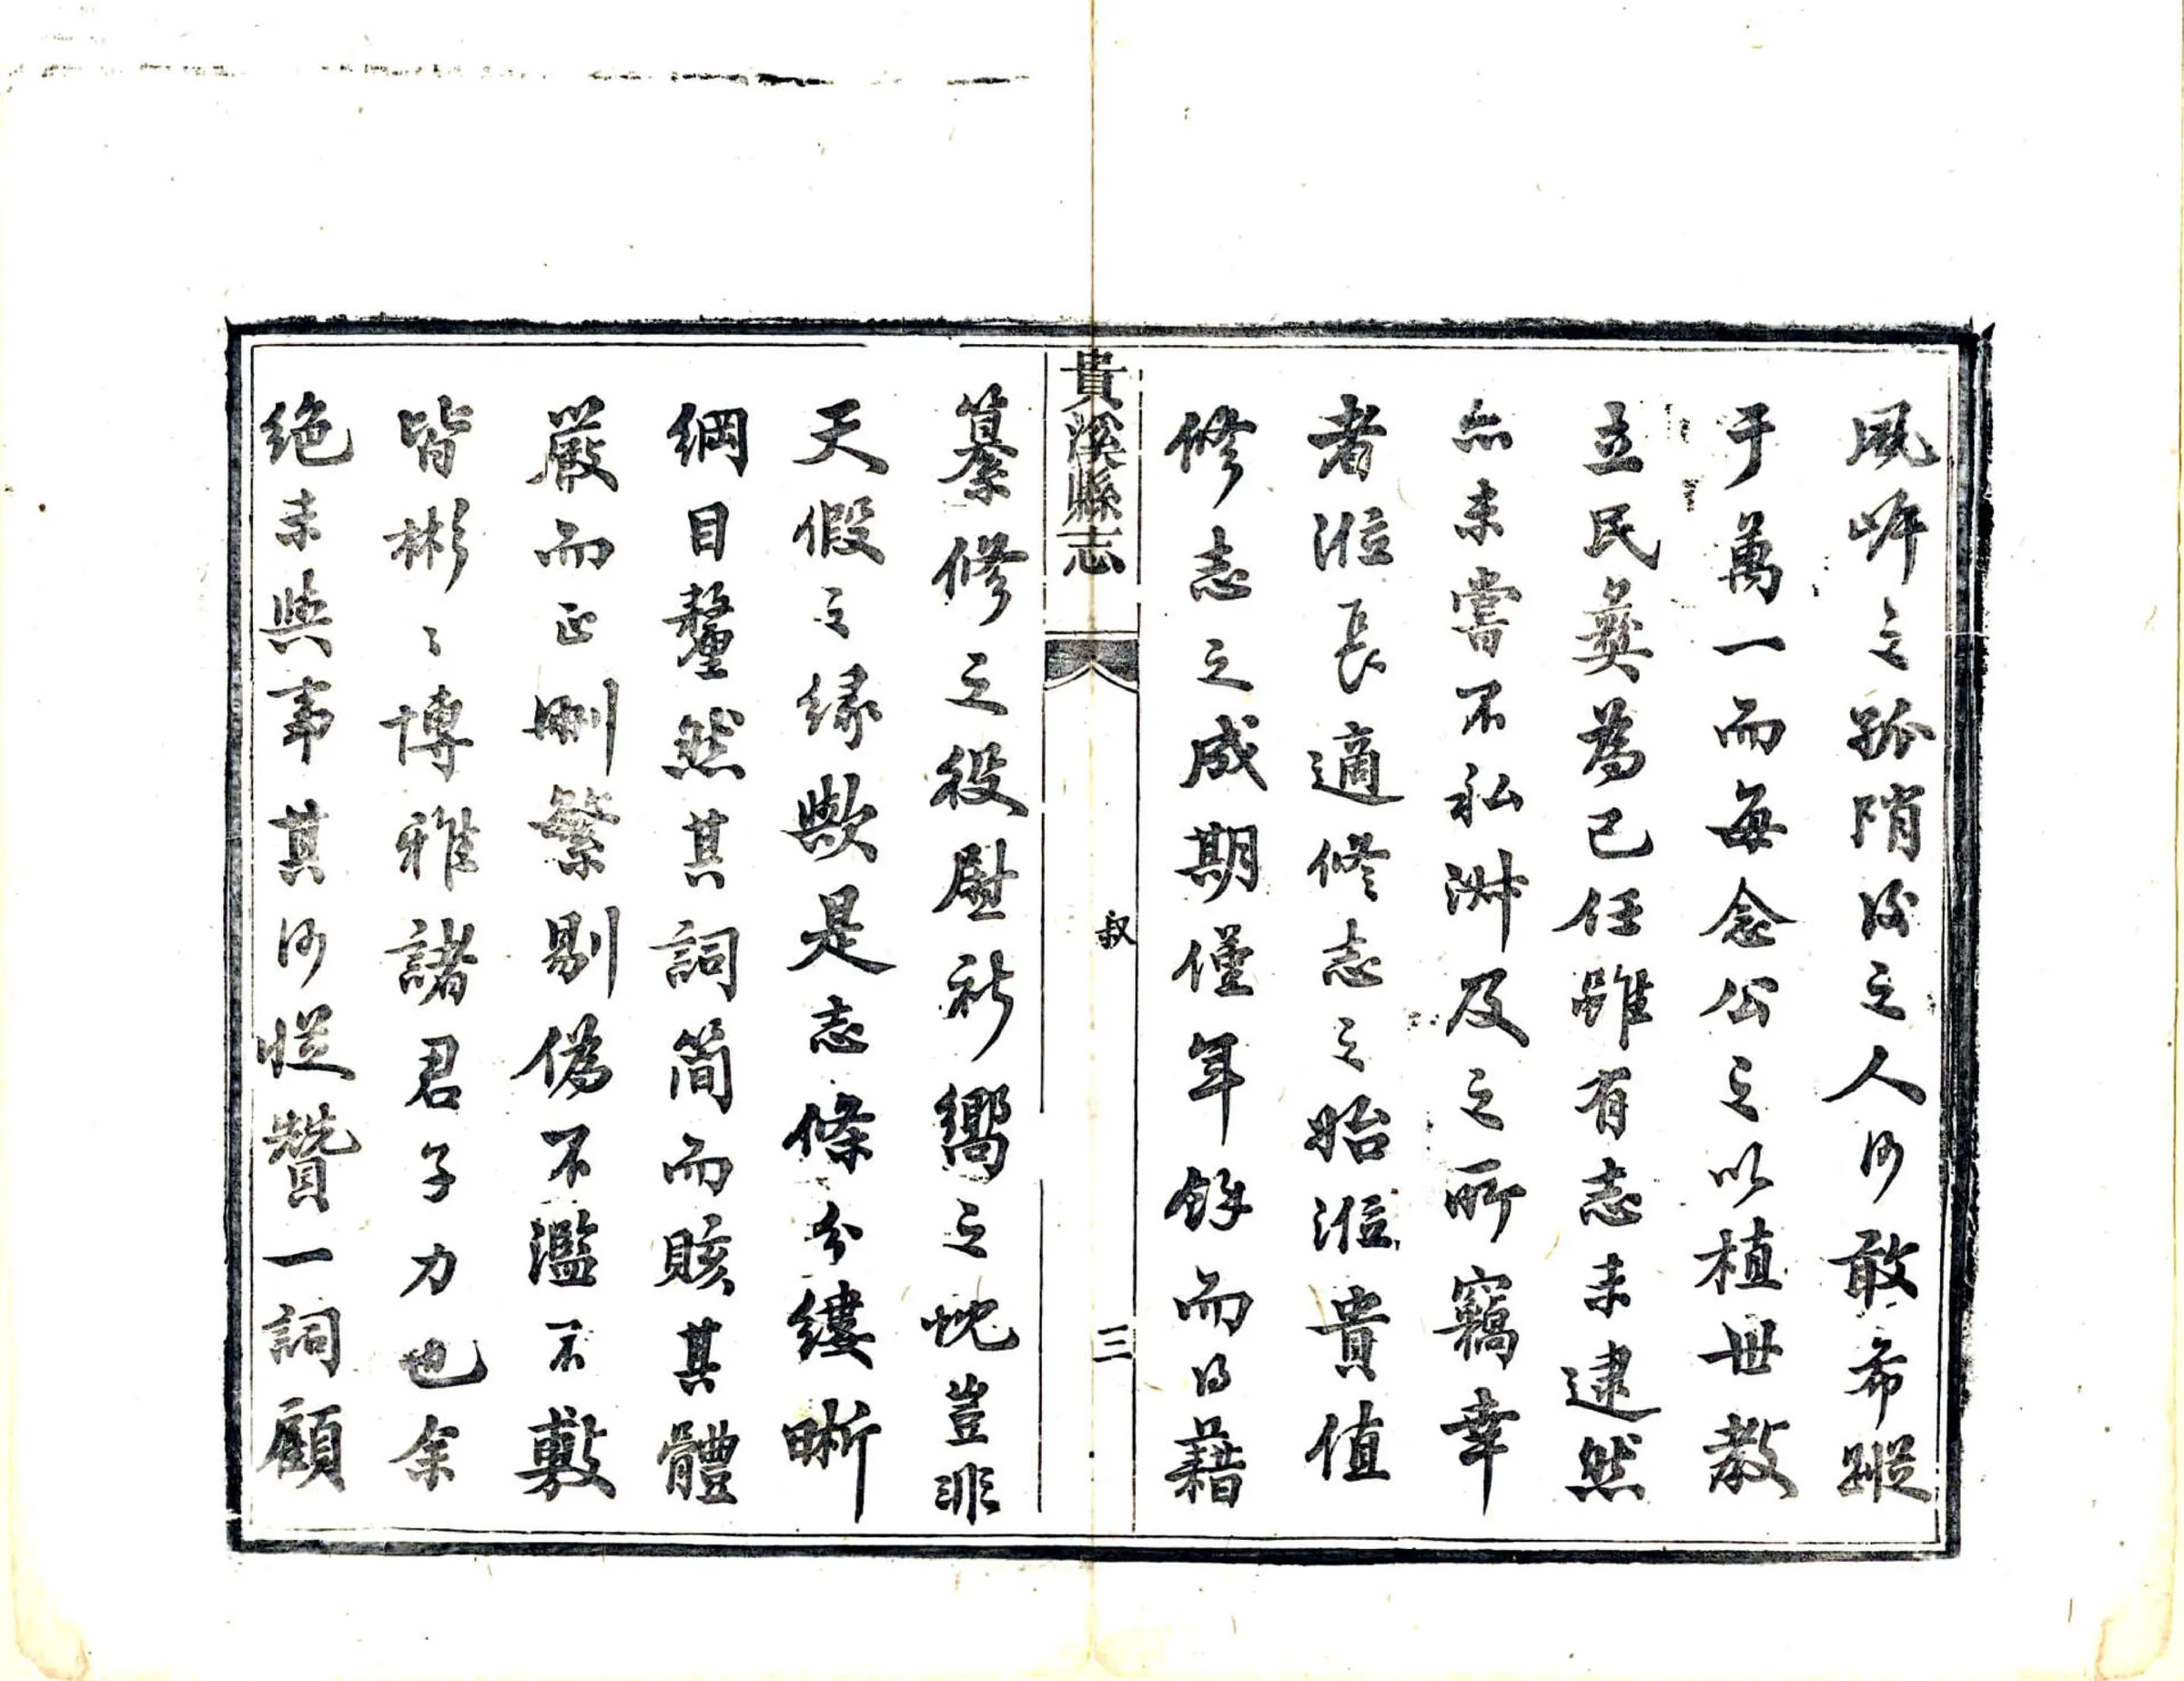 風岸之孤隋後之人何敢希蹤
于萬一而每念公之以植世教
立民彝為己任雖有志未逮然
亦未嘗不私淑及之所竊幸
者涖長適修志之始涖貴值
修志之成期僅年餘而得藉
貴溪縣志
叙
三
纂修之役慰祈嚮之忱豈非
天假之緣歟是志條分縷晰
綱目釐然其詞簡而賅其體
嚴而正刪繁剔偽不濫不敷
皆彬彬博雅諸君子力也余
絕未與事其何從贊一詞顧